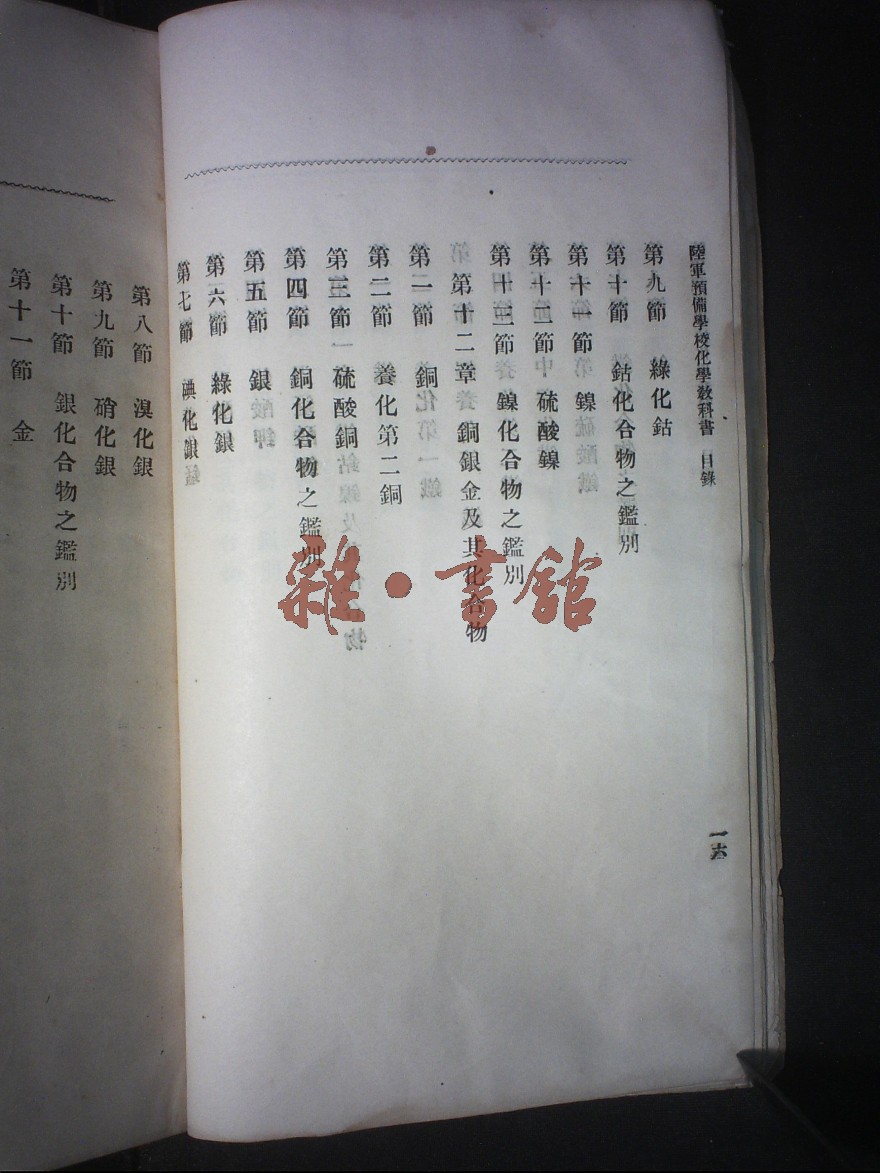 陸軍預備學校化學教科書 目錄
第九節 綠化鈷
第十節 鈷化合物之鑑別
第十一節 鎳
第十二節 硫酸鎳
第十三節 鎳化合物之鑑別
第十二章 銅銀金及其化合物
第一節 銅
第二節 養化第二銅
第三節 硫酸銅
第四節 銅化合物之鑑別
第五節 銀
第六節 綠化銀
第七節 碘化銀
一六
第八節 溴化銀
第九節 硝化銀
第十節 銀化合物之鑑別
第十一節 金
雜·書館